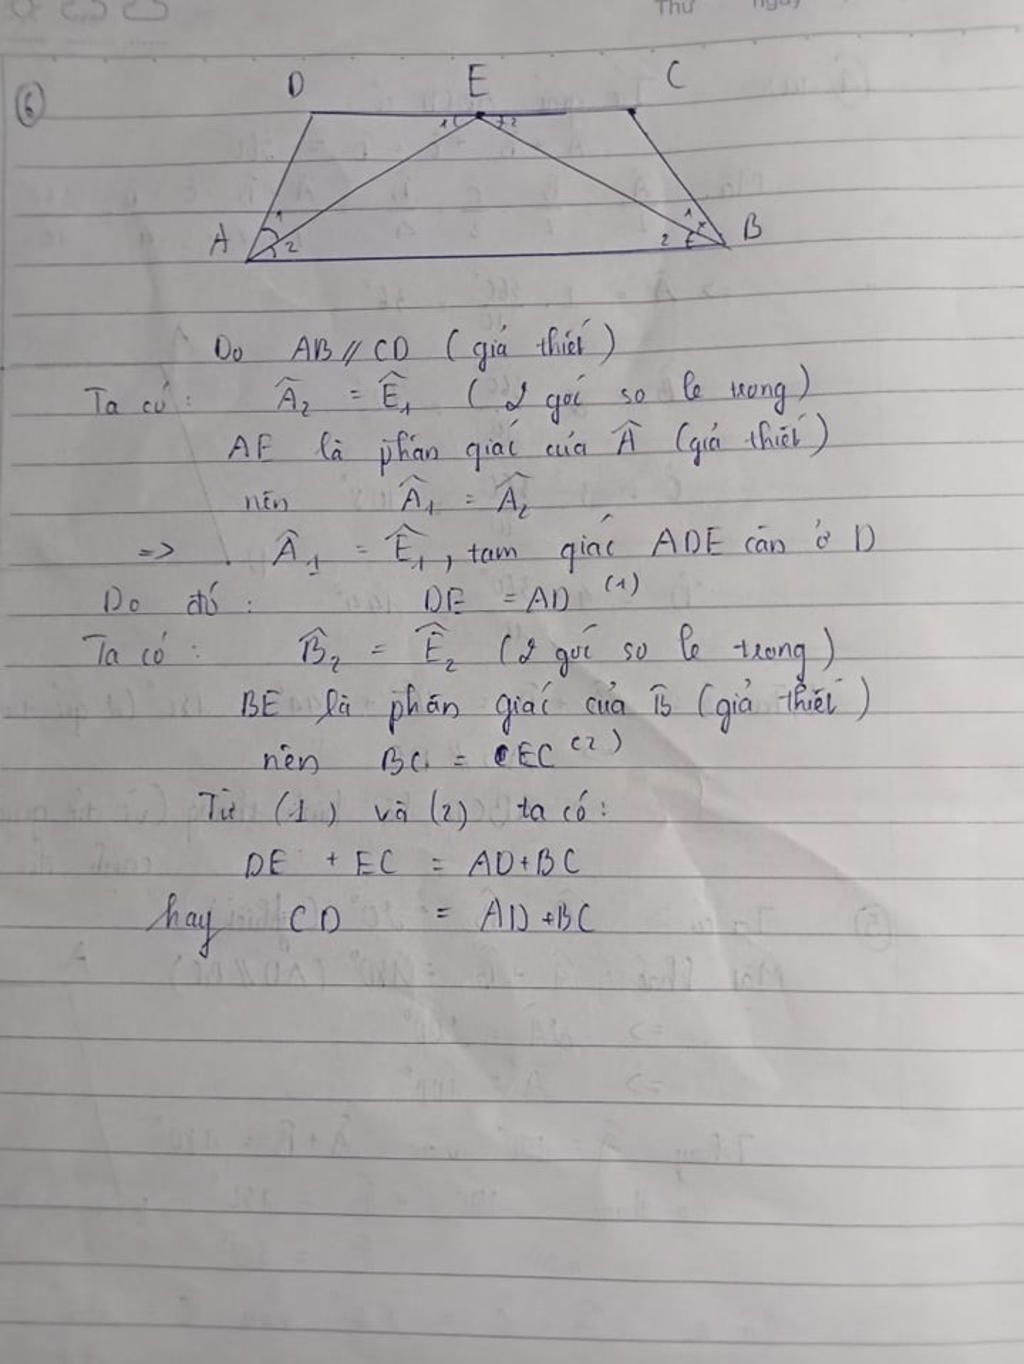 Thứ ngày
6
D E C
1 2
1 1
A 2 2 B
Do AB // CD (giả thiết)
Ta có: Â₂ = Ê₁ (2 góc so le trong)
AE là phân giác của Â (giả thiết)
nên Â₁ = Â₂
=> Â₁ = Ê₁, tam giác ADE cân ở D
Do đó: DE = AD (1)
Ta có: B̂₂ = Ê₂ (2 góc so le trong)
BE là phân giác của B̂ (giả thiết)
nên BC = EC (2)
Từ (1) và (2) ta có:
DE + EC = AD + BC
hay CD = AD + BC